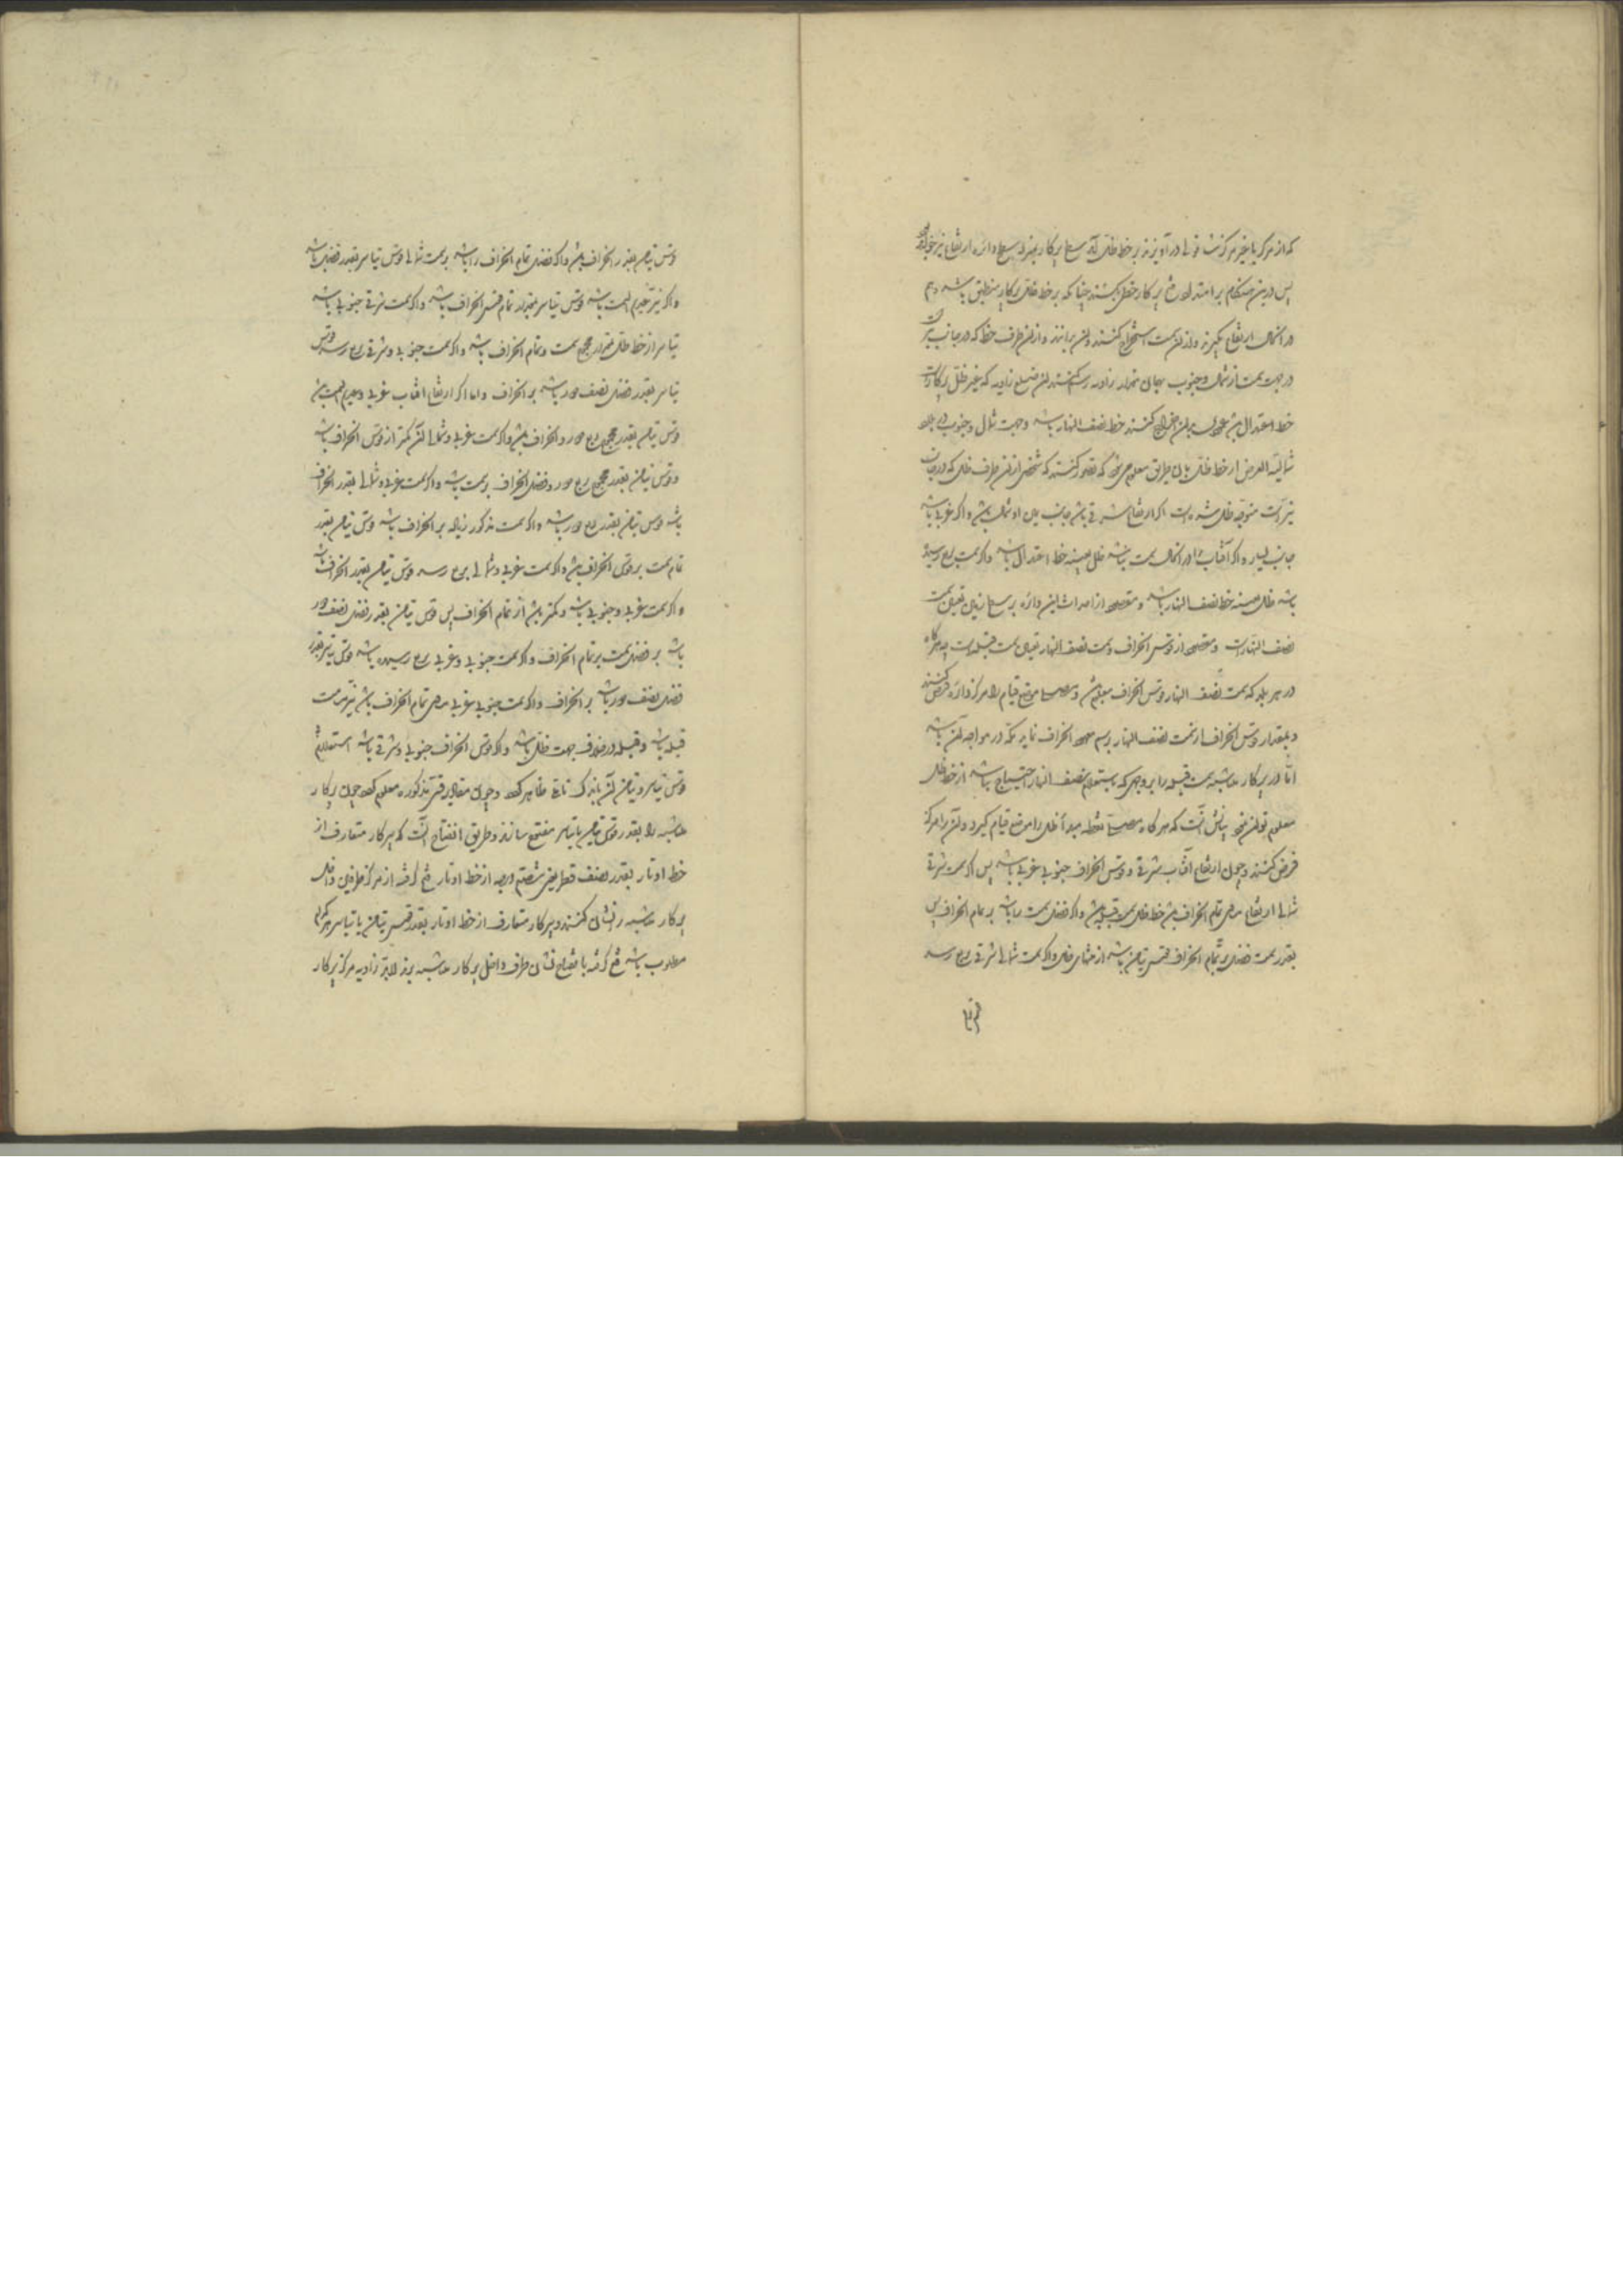 که از مرکز یا غیر مرکز شاقولی در آویزند بر خط ظل آید سطح پرکار بمنزله سطح دایره ارتفاع نیر خواهد
پس درین هنگام بر امتداد پرکار خطی بکشند چنانکه بر خط ظل پرکار منطبق باشد و هم
در آنحال ارتفاع گیرند و از آن سمت استخراج کنند و از آن طرف خط که در جانب نیر
در جهت سمت از شمال و جنوب بمقدار زاویه رسم کنند آن ضلع زاویه که غیر ظل پرکارست
خط اعتدال بود عمودی بر آن اخراج کنند خط نصف النهار باشد و جهت شمال و جنوب در بلاد
شمالیة العرض از خط ظل باین طریق معلوم می‌شود که تصور کنند که شخصی از آن طرف ظل که در جانب
نیر است متوجه ظل شده است اگر ارتفاع شرقی باشد جانب یمین او شمال باشد و اگر غربی باشد
جانب یسار و اگر آفتاب را در آنحال سمت نباشد ظل بعینه خط اعتدال باشد و اگر سمت بربع رسیده
باشد ظل بعینه خط نصف النهار باشد و مقصود از احداث این دائره بر سطح زمین تعیین سمت
نصف النهار است و مقصود از قوس انحراف و سمت نصف النهار تعیین سمت قبله است چه هرگاه
در هر بلد که سمت نصف النهار و قوس انحراف معلوم باشد و مصلی موضع قیام را مرکز دائره فرض کنند
و بمقدار قوس انحراف از سمت نصف النهار بدان جهت انحراف نماید مکه در مواجه آن باشد
امّا در پرکار حاشیه سمت قبله را بر وجهی که باستعلام نصف النهار احتیاج نباشد از خط ظل
معلوم توان نمود بیانش آنست که هرگاه مصلی نقطه مبدأ ظل را موضع قیام گیرد و آن را مرکز
فرض کنند و چون ارتفاع آفتاب شرقی و قوس انحراف جنوبی غربی باشد پس اگر سمت شرقی
شمالی ارتفاع مساوی تمام انحراف باشد خط ظل سمت قبله باشد و اگر فضل سمت را باشد بر تمام انحراف پس
بقدر سمت فضل بر تمام انحراف قوس تیامن باشد از منتهای ظل و اگر سمت شمالی شرقی بربع رسد
قوس تیامن بقدر انحراف باشد و اگر فضل تمام انحراف را باشد بر سمت شمالی قوس تیاسر بقدر فضل باشد
و اگر نیر عدیم السمت باشد قوس تیاسر بمقدار تمام قوس انحراف باشد و اگر سمت شرقی جنوبی باشد
تیاسر از خط ظل بمقدار مجموع سمت و تمام انحراف باشد و اگر سمت جنوبی و شرقی بربع رسد قوس
تیاسر بقدر فضل نصف دور باشد بر انحراف و اما اگر ارتفاع آفتاب غربی و عدیم السمت باشد
قوس تیامن بقدر مجموع ربع دور و انحراف باشد و اگر سمت غربی و شمالی آن کمتر از قوس انحراف باشد
و قوس تیامن بقدر مجموع ربع دور و فضل انحراف بر سمت باشد و اگر سمت غربی و شمالی بقدر انحراف
باشد قوس تیامن بقدر ربع دور باشد و اگر سمت مذکور زیاده بر انحراف باشد قوس تیامن بقدر
تمام سمت بر قوس انحراف باشد و اگر سمت غربی و شمالی بربع رسد قوس تیامن بقدر انحراف باشد
و اگر سمت غربی و جنوبی باشد و کمتر باشد از تمام انحراف پس قوس تیامن بقدر فضل نصف دور
باشد بر فضل سمت بر تمام انحراف و اگر سمت جنوبی و غربی بربع رسیده باشد قوس تیاسر بقدر
فضل نصف دور باشد بر انحراف و اگر سمت جنوبی غربی مساوی تمام انحراف باشد نیر در سمت
قبله باشد و قبله در خلاف جهت ظل باشد و اگر قوس انحراف جنوبی و شرقی باشد استعلام
قوس تیاسر و تیامن آن باندک تأمل ظاهر گردد و چون مقادیر قسی مذکوره معلوم گردد چون پرکار
حاشیه را بقدر قوس تیامن یا تیاسر منفتح سازند و طریق انفتاح آنست که پرکار متعارف از
خط اوتار بقدر نصف قطر یعنی شصتم درجه از خط اوتار فتح کرده از مرکز طرفین داخل
پرکار حاشیه را نشان کنند و پرکار متعارف از خط اوتار بقدر قوس تیامن یا تیاسر هر کدام
مطلوب باشد فتح کرده با مقدار نشان طرف داخل پرکار حاشیه برند لابد زاویه مرکز پرکار